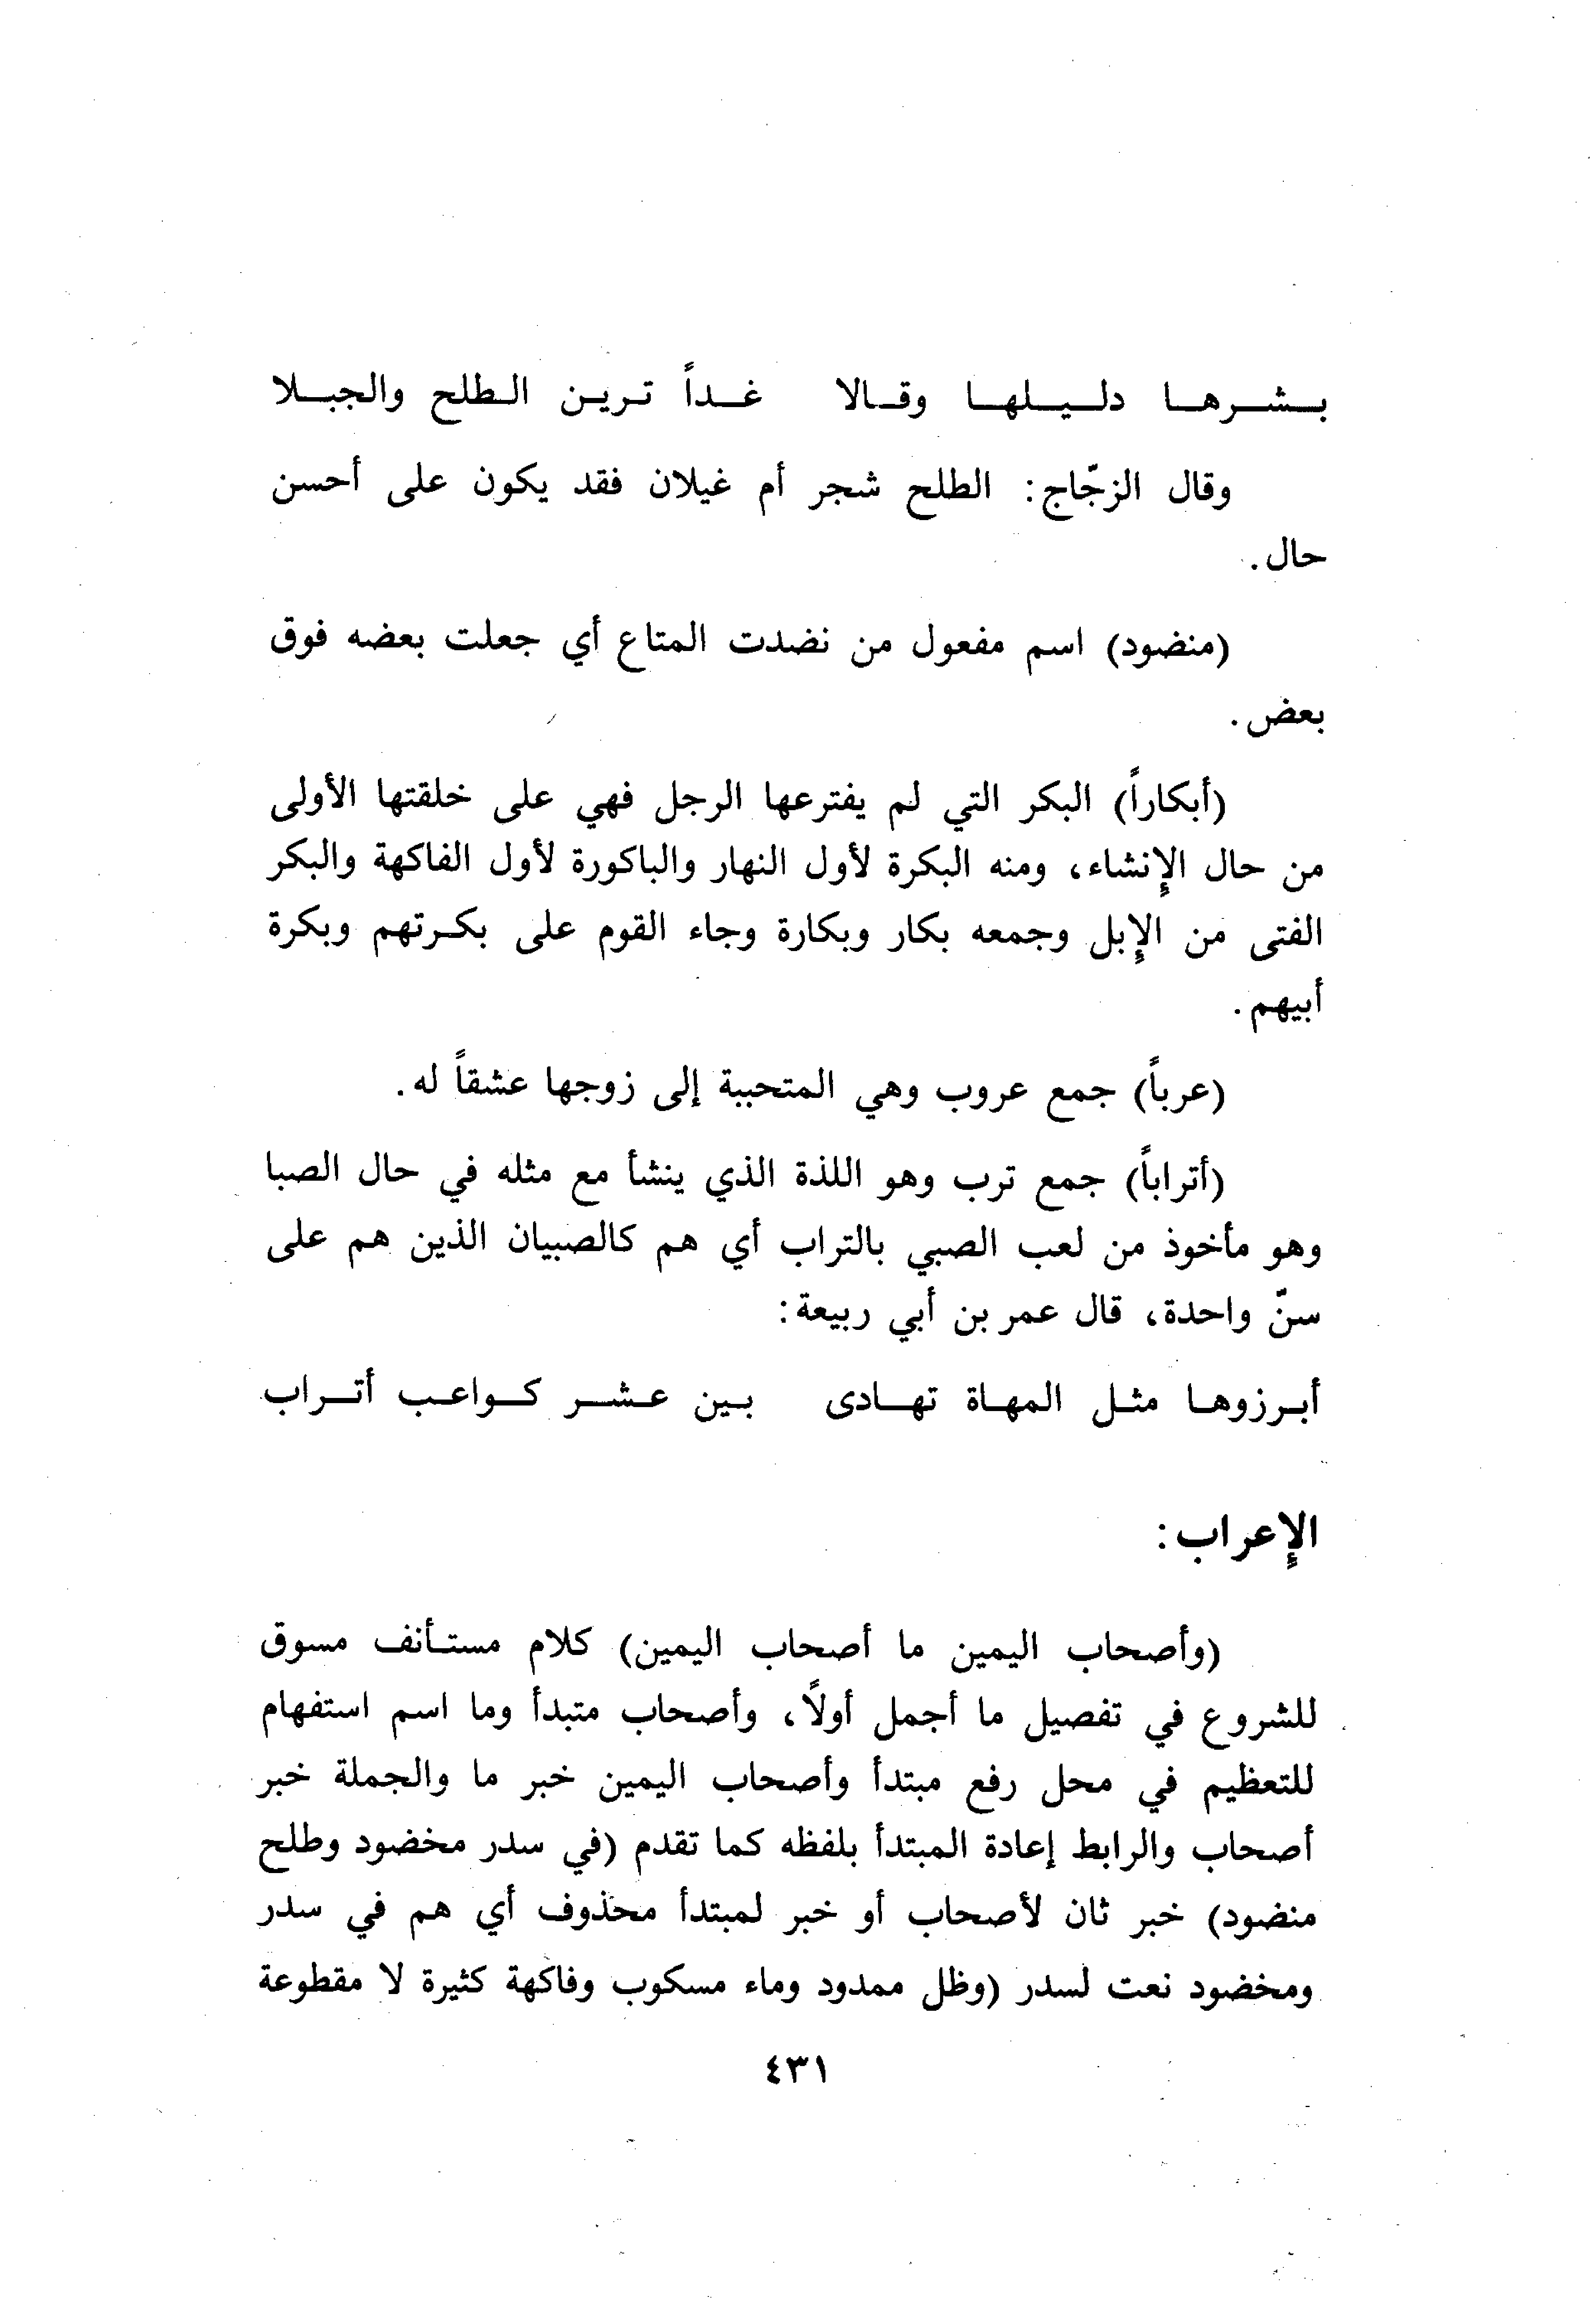 بشرها دليلها وقالا غداً ترين الطلح والجبلا
وقال الزجّاج: الطلح شجر أم غيلان فقد يكون على أحسن
حال.
(منضود) اسم مفعول من نضدت المتاع أي جعلت بعضه فوق
بعض.
(أبكاراً) البكر التي لم يفترعها الرجل فهي على خلقتها الأولى
من حال الإنشاء، ومنه البكرة لأول النهار والباكورة لأول الفاكهة والبكر
الفتى من الإبل وجمعه بكار وبكارة وجاء القوم على بكرتهم وبكرة
أبيهم.
(عرباً) جمع عروب وهي المتحببة إلى زوجها عشقاً له.
(أتراباً) جمع ترب وهو اللذة الذي ينشأ مع مثله في حال الصبا
وهو مأخوذ من لعب الصبي بالتراب أي هم كالصبيان الذين هم على
سنّ واحدة، قال عمر بن أبي ربيعة:
أبرزوها مثل المهاة تهادى بين عشر كواعب أتراب
الإعراب:
(وأصحاب اليمين ما أصحاب اليمين) كلام مستأنف مسوق
للشروع في تفصيل ما أجمل أولاً، وأصحاب متبدأ وما اسم استفهام
للتعظيم في محل رفع مبتدأ وأصحاب اليمين خبر ما والجملة خبر
أصحاب والرابط إعادة المبتدأ بلفظه كما تقدم (في سدر مخضود وطلح
منضود) خبر ثان لأصحاب أو خبر لمبتدأ محذوف أي هم في سدر
ومخضود نعت لسدر (وظل ممدود وماء مسكوب وفاكهة كثيرة لا مقطوعة
٤٣١